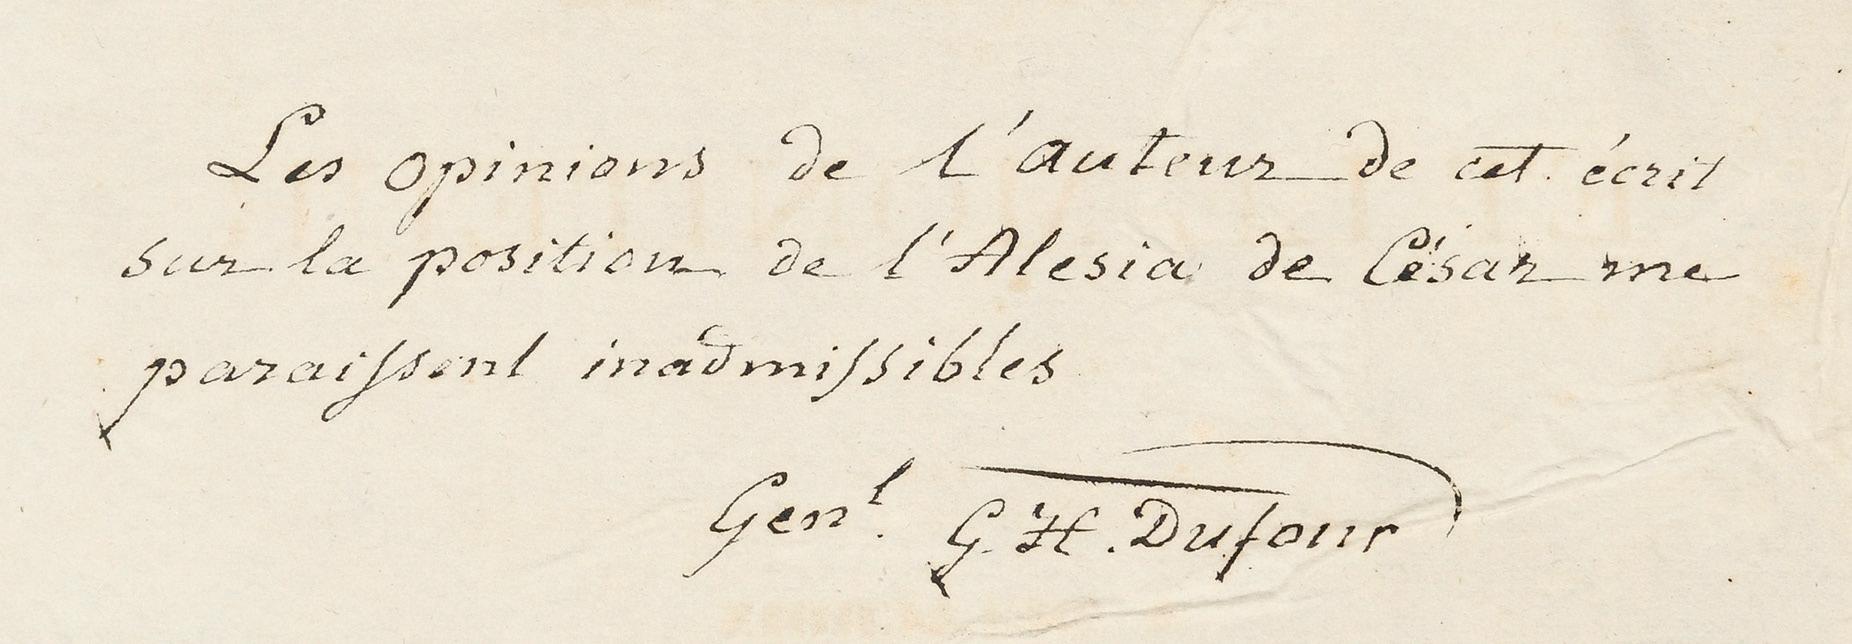 Les opinions de l'auteur de cet écrit
sur la position de l'Alesia de César me
paraissent inadmissibles
Genl. G. H. Dufour